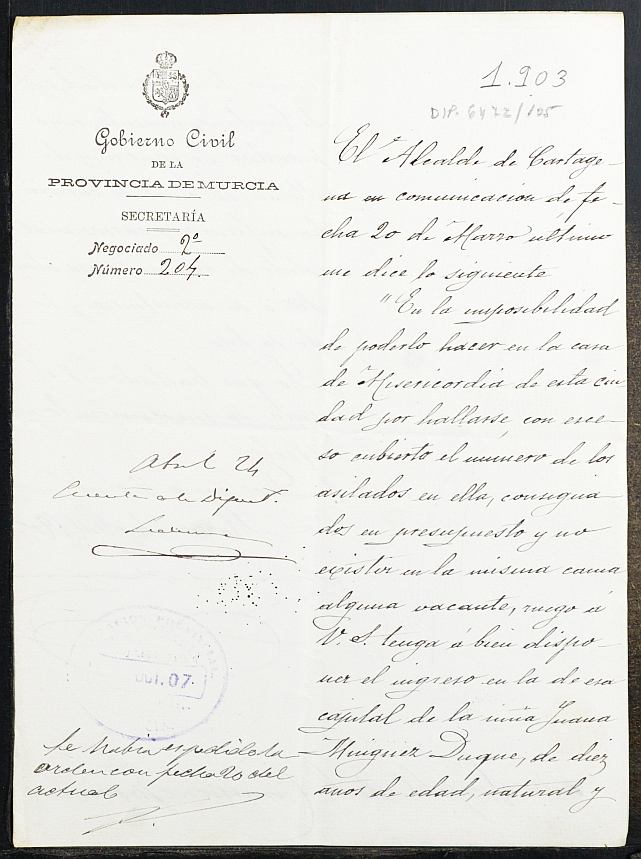 1.903
DIP. 6472/125
Gobierno Civil
DE LA
PROVINCIA DE MURCIA
SECRETARÍA
Negociado 2º
Número 204.
El Alcalde de Cartage-
na en comunicacion de fe-
cha 20 de Marzo ultimo
me dice lo siguiente
"En la imposibilidad
de poderlo hacer en la casa
de Misericordia de esta ciu
dad por hallarse, con exce-
so cubierto el numero de los
asilados en ella, consigna-
dos en presupuesto y no
existir en la misma cama
alguna vacante, ruego á
V. S. tenga á bien dispo-
ner el ingreso en la de esa
capital de la niña Juana
Minguez Duque, de diez
años de edad, natural y
Abril 24
Cuenta a la Diput.
07
Se había expedido la
orden con fecha 20 del
actual